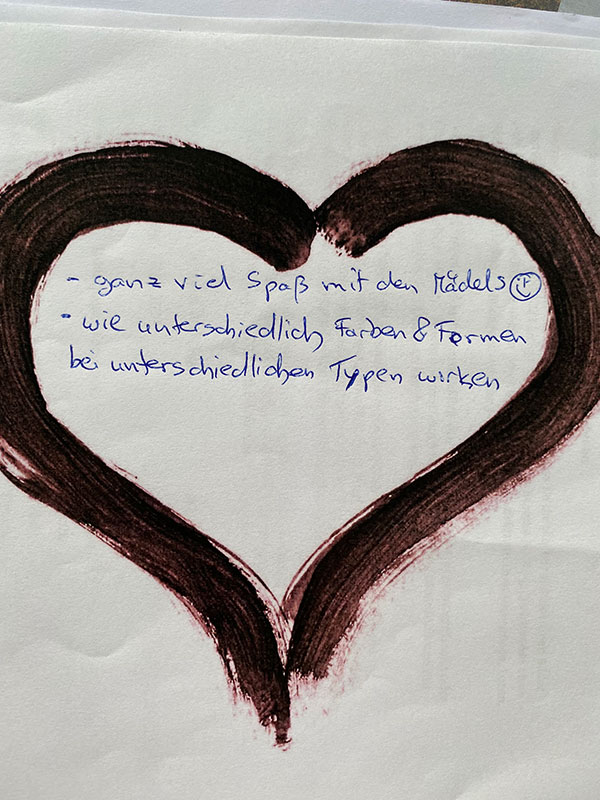 - ganz viel Spaß mit den Mädels
- wie unterschiedlich Farben & Formen
bei unterschiedlichen Typen wirken